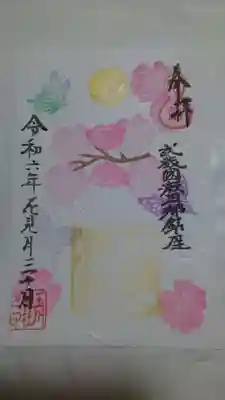 奉拝
武蔵國
鎮座
令和六年 花見月三十日